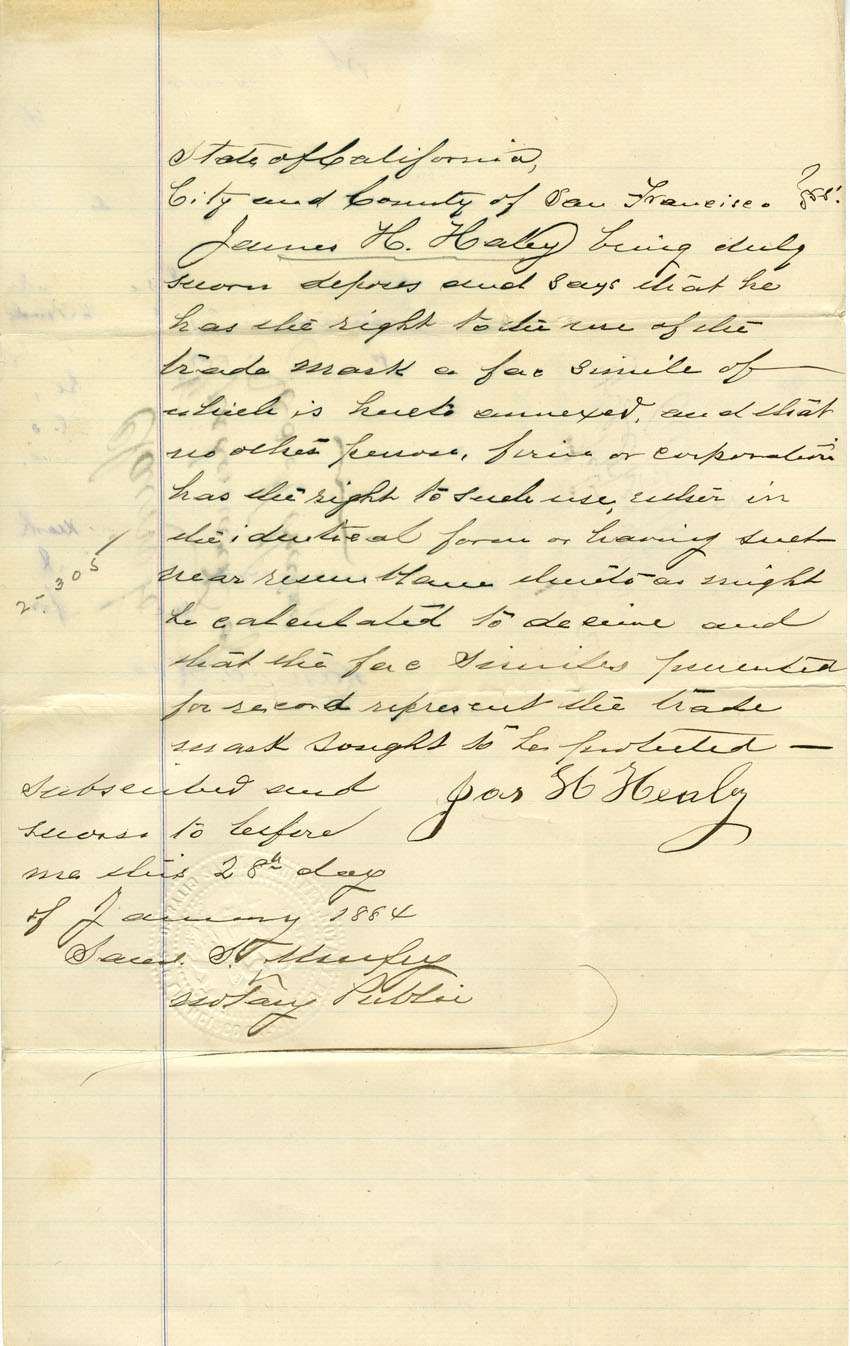 State of California,
City and County of San Francisco } ss.
James H. Healy being duly
sworn deposes and says that he
has the right to the use of the
trade mark a fac simile of
which is hereto annexed, and that
no other person, firm or corporation
has the right to such use, either in
the identical form or having such
near resemblance thereto as might
be calculated to deceive and
that the fac similes presented
for record represent the trade
mark sought to be protected —
Jas H Healy
subscribed and
sworn to before
me this 28th day
of January 1884
Saml. S. Murfey
Notary Public
2305